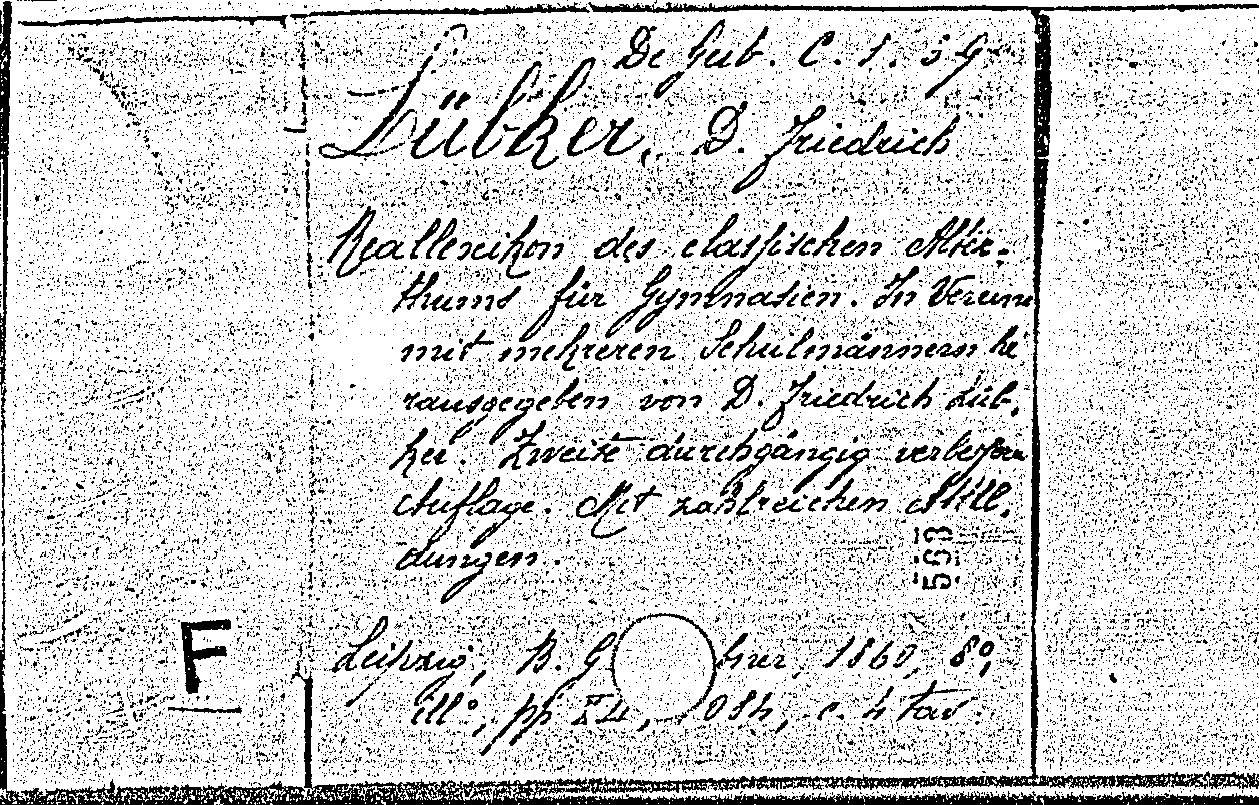 De Gub. C. 1. 39
Lübker, D. Friedrich
Reallexikon des classischen Alter-
thums für Gymnasien. In Verein
mit mehreren Schulmännern he
rausgegeben von D. Friedrich Lüb-
ker. Zweite durchgängig verbesserte
Auflage. Mit zahlreichen Abbil-
dungen.
563
F
Leipzig, B. G bner, 1860, 8°,
ill°, pp , 084, c. 4 tav.